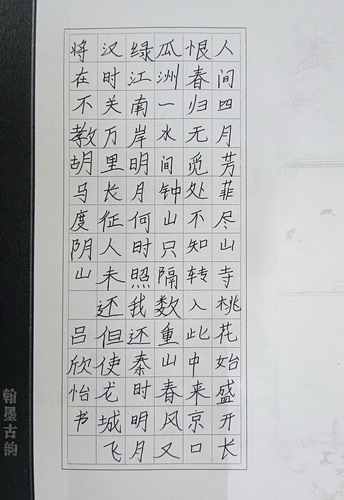 人间四月芳菲尽山寺桃花始盛开长
恨春归无觅处不知转入此中来京口
瓜洲一水间钟山只隔数重山春风又
绿江南岸明月何时照我还秦时明月
汉时关万里长征人未还但使龙城飞
将在不教胡马度阴山 吕欣怡书
翰墨古韵